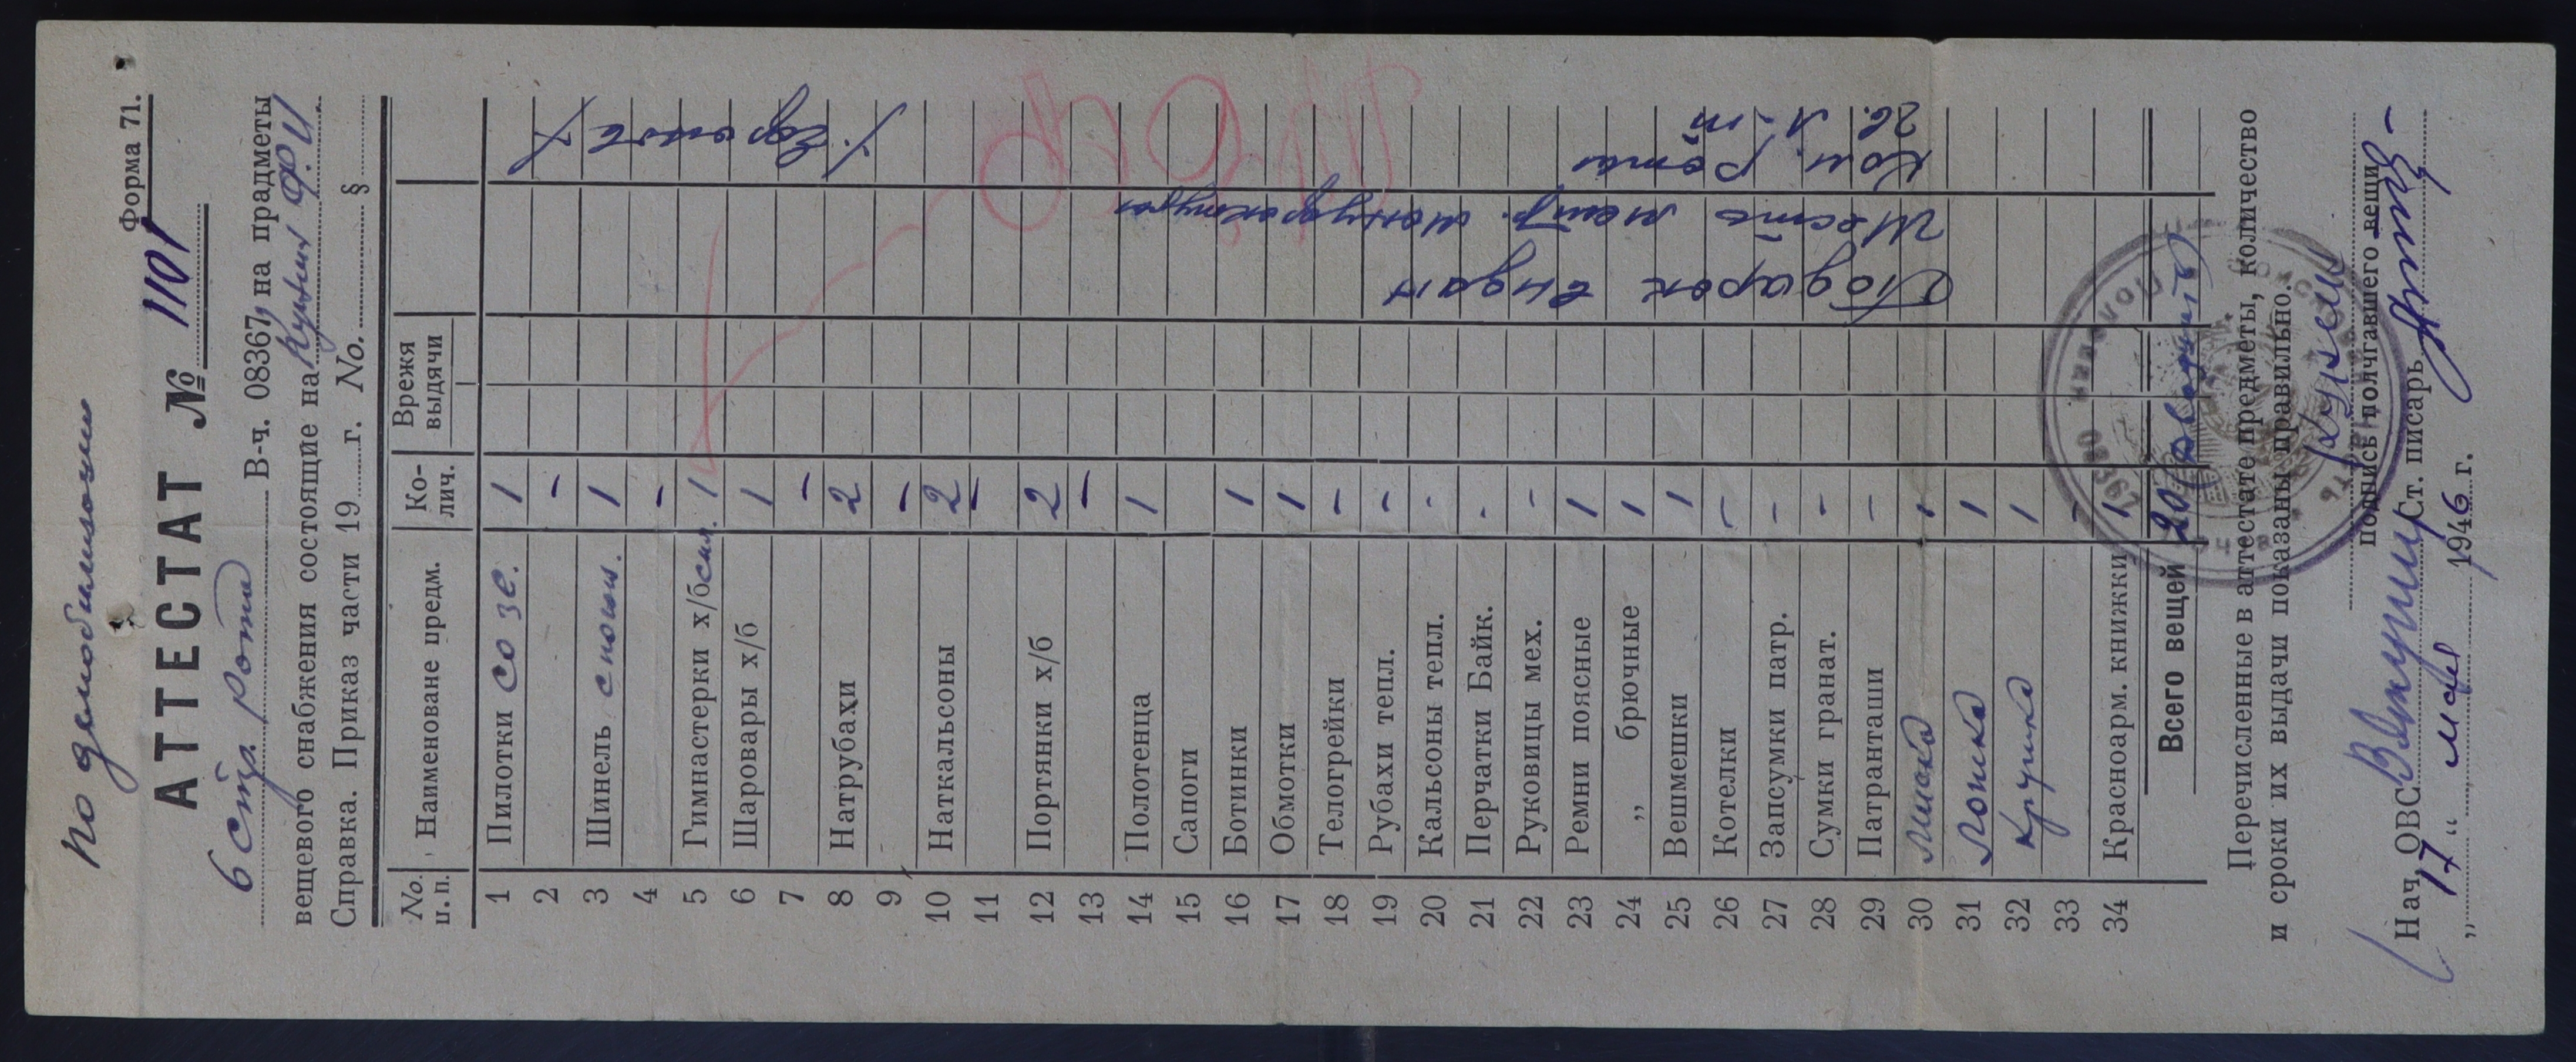 По демобилизации
Форма 71.
АТТЕСТАТ № 1101
6 стр. рота В-ч. 08367 на прадметы
вещевого снабжения состоящие на Ф. И.
Справка. Приказ части 19 г. No. §
No. п. п. Наименоване предм. Ко-лич. Врежя выдячи
1 Пилотки со зв. 1
2 -
3 Шинель с погон. 1
4 -
5 Гимнастерки х/б 1
6 Шаровары х/б 1
7 -
8 Натрубахи 2
9 -
10 Наткальсоны 2
11 -
12 Портянки х/б 2
13 -
14 Полотенца 1
15 Сапоги
16 Ботинки 1
17 Обмотки 1
18 Телогрейки -
19 Рубахи тепл. -
20 Кальсоны тепл. -
21 Перчатки Байк. -
22 Руковицы мех. -
23 Ремни поясные 1
24 „ брючные 1
25 Вешмешки 1
26 Котелки -
27 Запсумки патр. -
28 Сумки гранат. -
29 Патранташи -
30 Миска 1
31 Ложка 1
32 Кружка 1
33 -
34 Красноарм. книжки 1
Всего вещей 20 (двадцать)
Подарок выдан
Шесть метр. мануфактуры
Ком. роты
гв. л-т
Перечисленные в аттестате предметы, количество
и сроки их выдачи показаны правильно.
подпись полчгавшего вещи
Нач. ОВС Ст. писарь
„ 17 “ мая 1946 г.